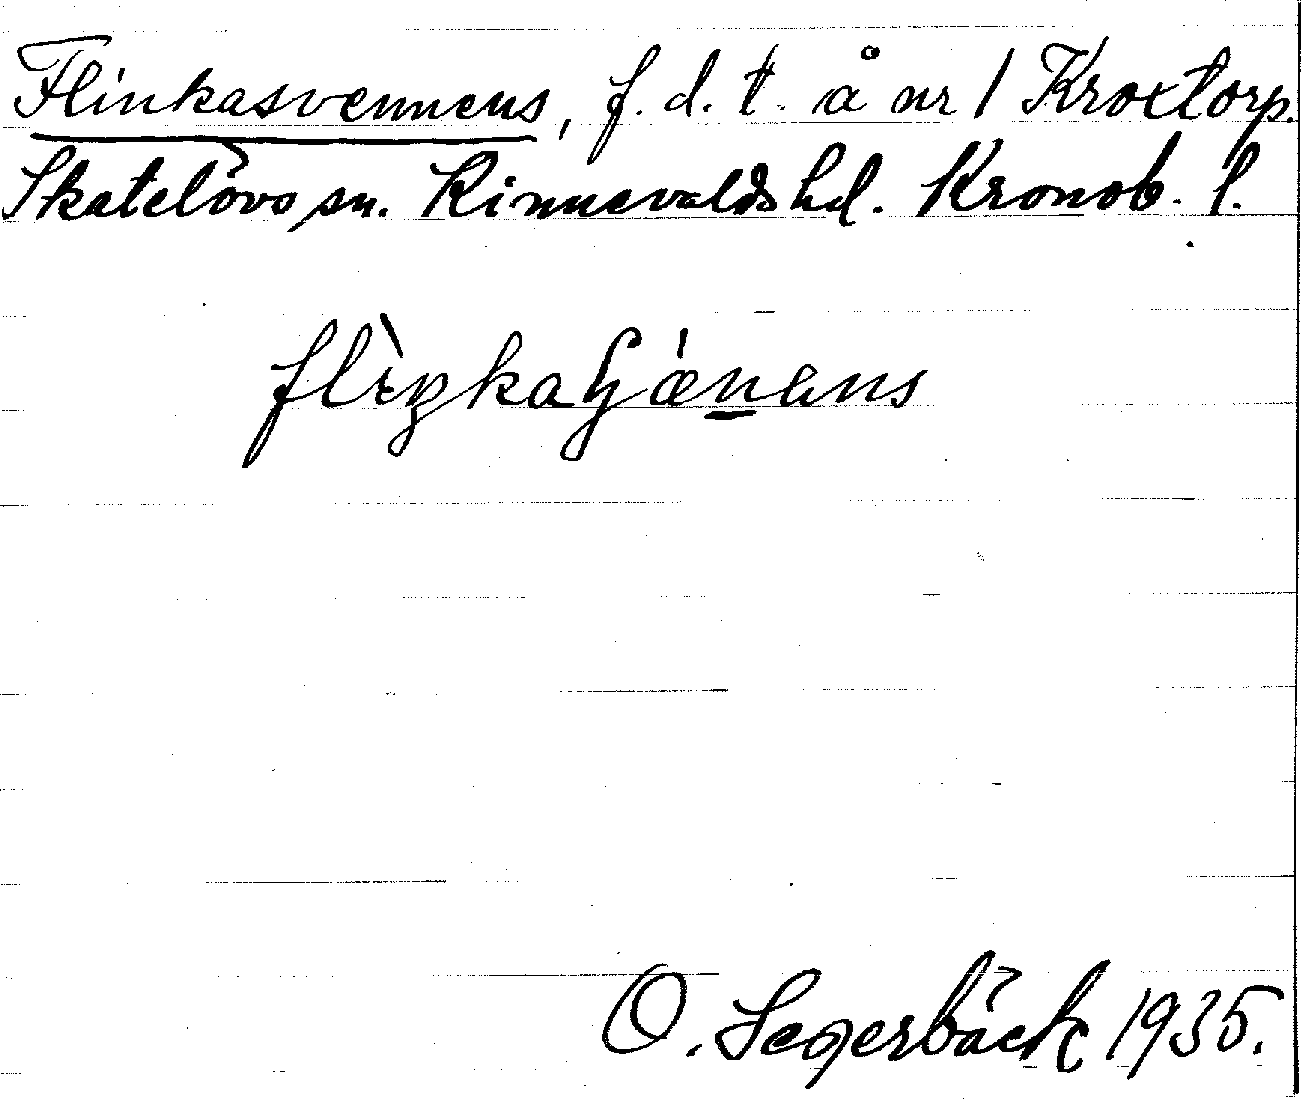 Flinkasvennens, f. d. t. å nr 1 Kroxtorp.
Skatelövs sn. Kinnevalds hd. Kronob. l.
O. Segerbäck 1935.